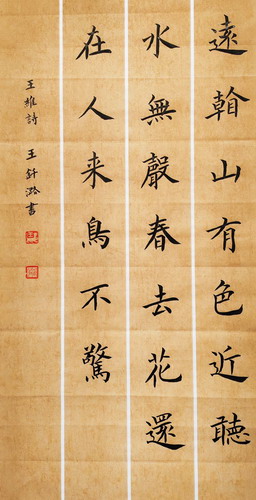 遠山有色近聽
水無聲春去花還
在人来鳥不驚
王維詩 王書